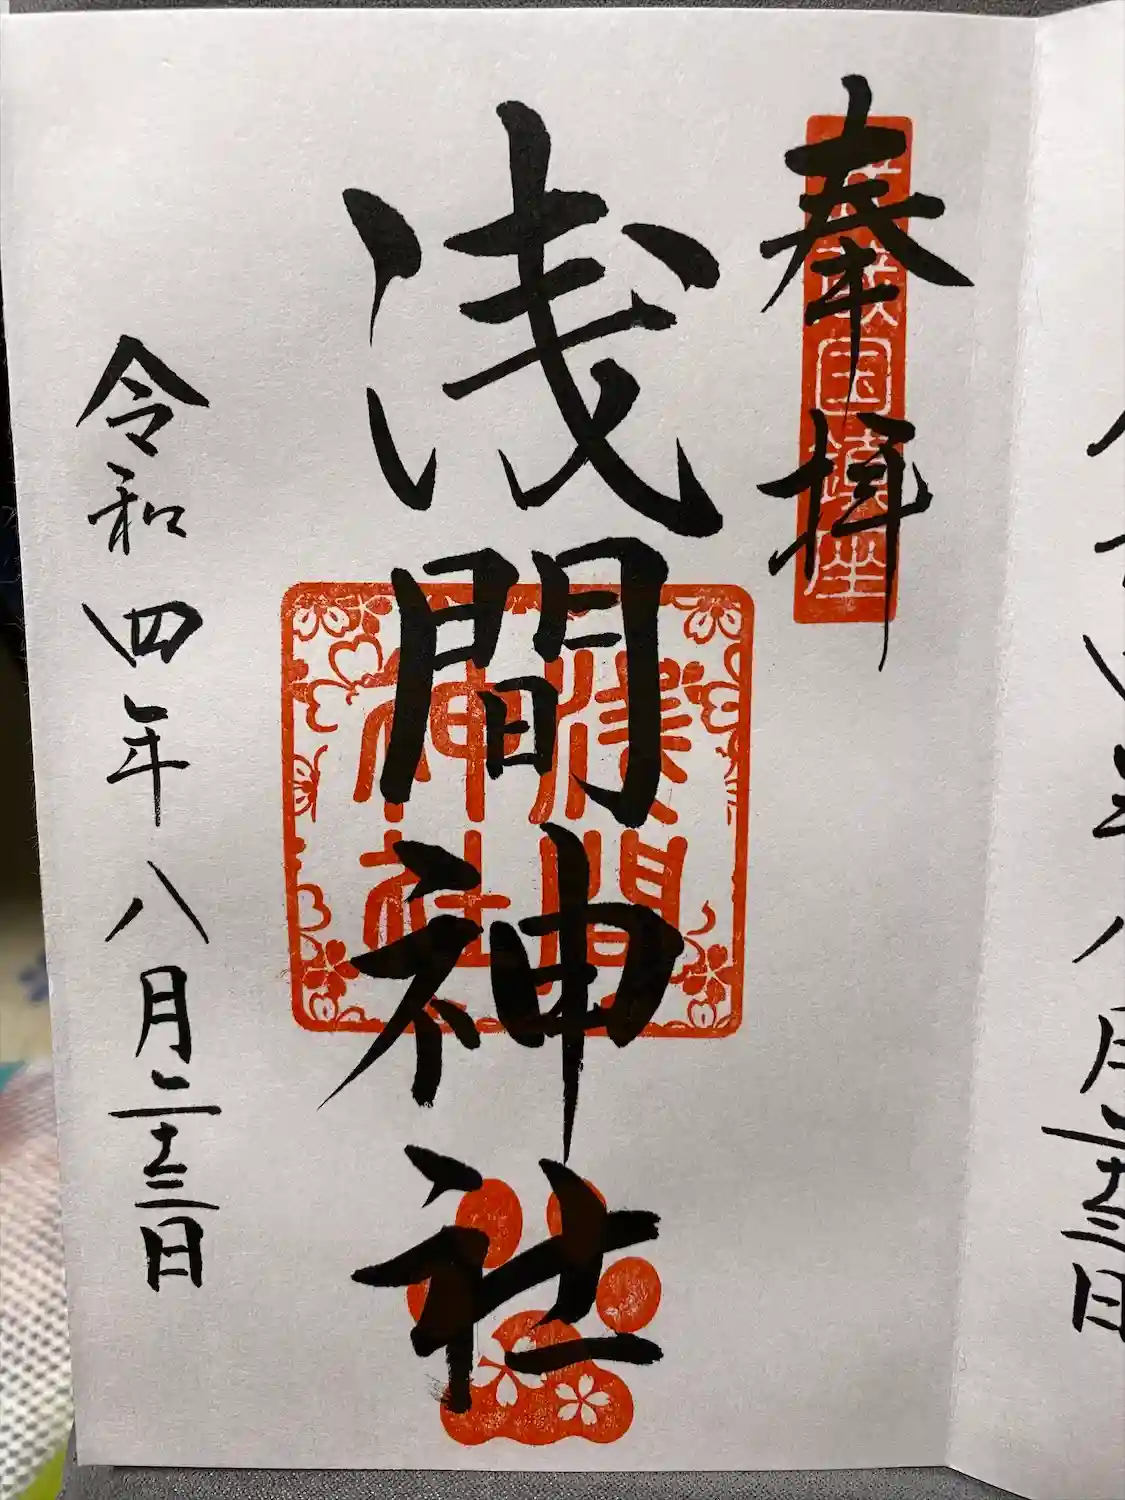 奉拝
国鎮座
浅間神社
浅間
神社
令和四年八月二十三日